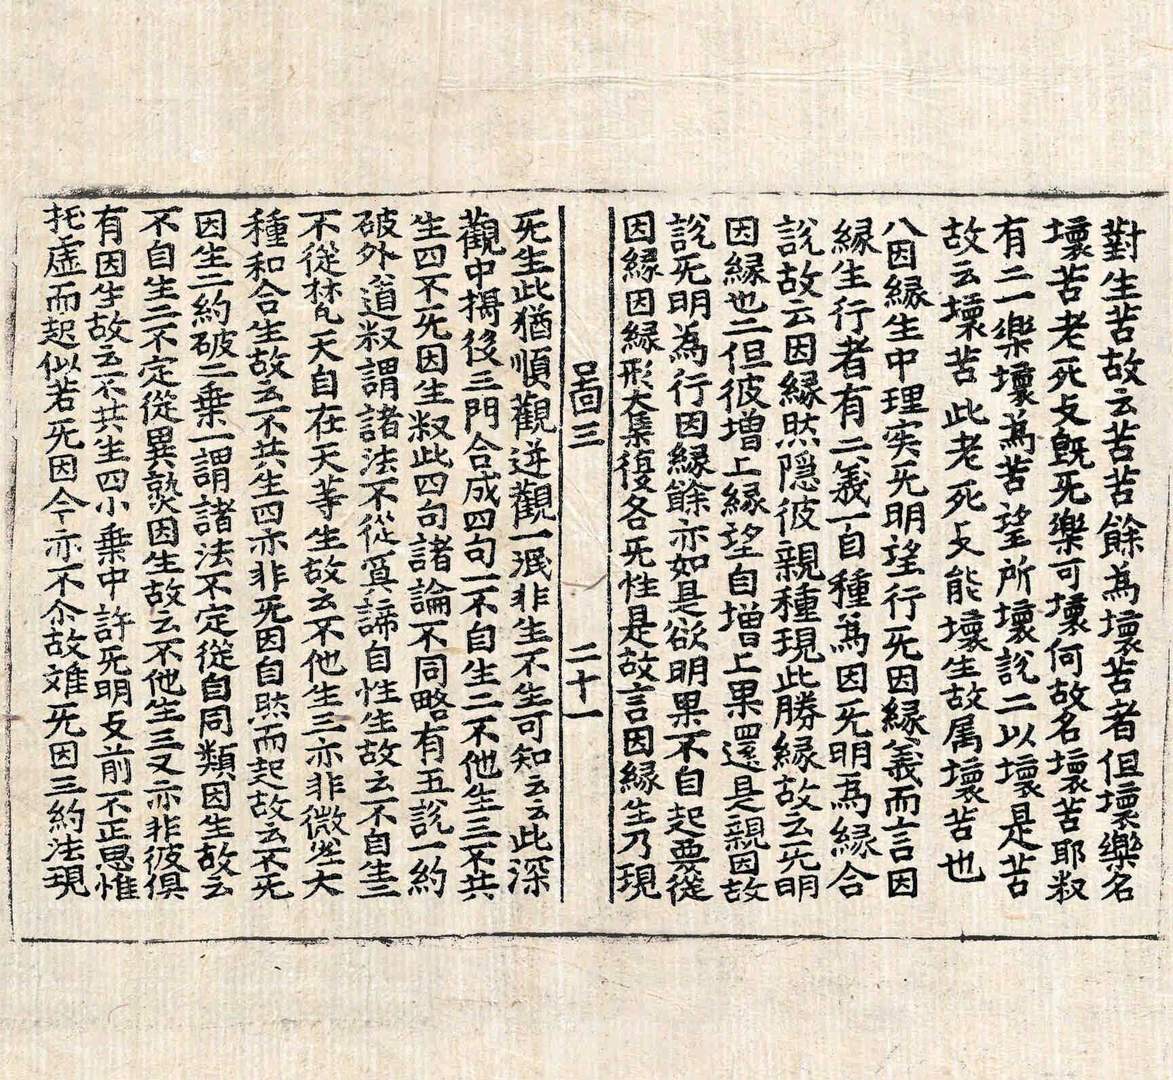 對生苦故云苦苦餘為壞苦者但壞樂名
壞苦老死攴旣旡樂可壞何故名壞苦耶釈
有二一樂壞為苦望所壞說二以壞是苦
故云壞苦此老死攴能壞生故属壞苦也
八因縁生中理实旡明望行旡因縁義而言因
縁生行者有二義一自種為因旡明為縁合
說故云因縁然隱彼親種現此勝縁故云旡明
因縁也二但彼增上縁望自增上果還是親因故
說旡明為行因縁餘亦如是欲明果不自起要從
因縁因縁形大集復各旡性是故言因縁生乃現
啚三 二十一
旡生此猶順觀逆觀一泯非生不生可知云云此深
觀中搆後三門合成四句一不自生二不他生三不共
生四不旡因生釈此四句諸論不同略有五說一約
破外道釈謂諸法不從冥諦自性生故云不自生二
不從梵天自在天等生故云不他生三亦非微尘大
種和合生故云不共生四亦非旡因自然而起故云不旡
因生二約破二乗一謂諸法不定從自同類因生故云
不自生二不定從異熟因生故云不他生三又亦非彼俱
有因生故云不共生四小乗中許旡明攴前不正思惟
托虛而起似若旡因今亦不尒故难旡因三約法現